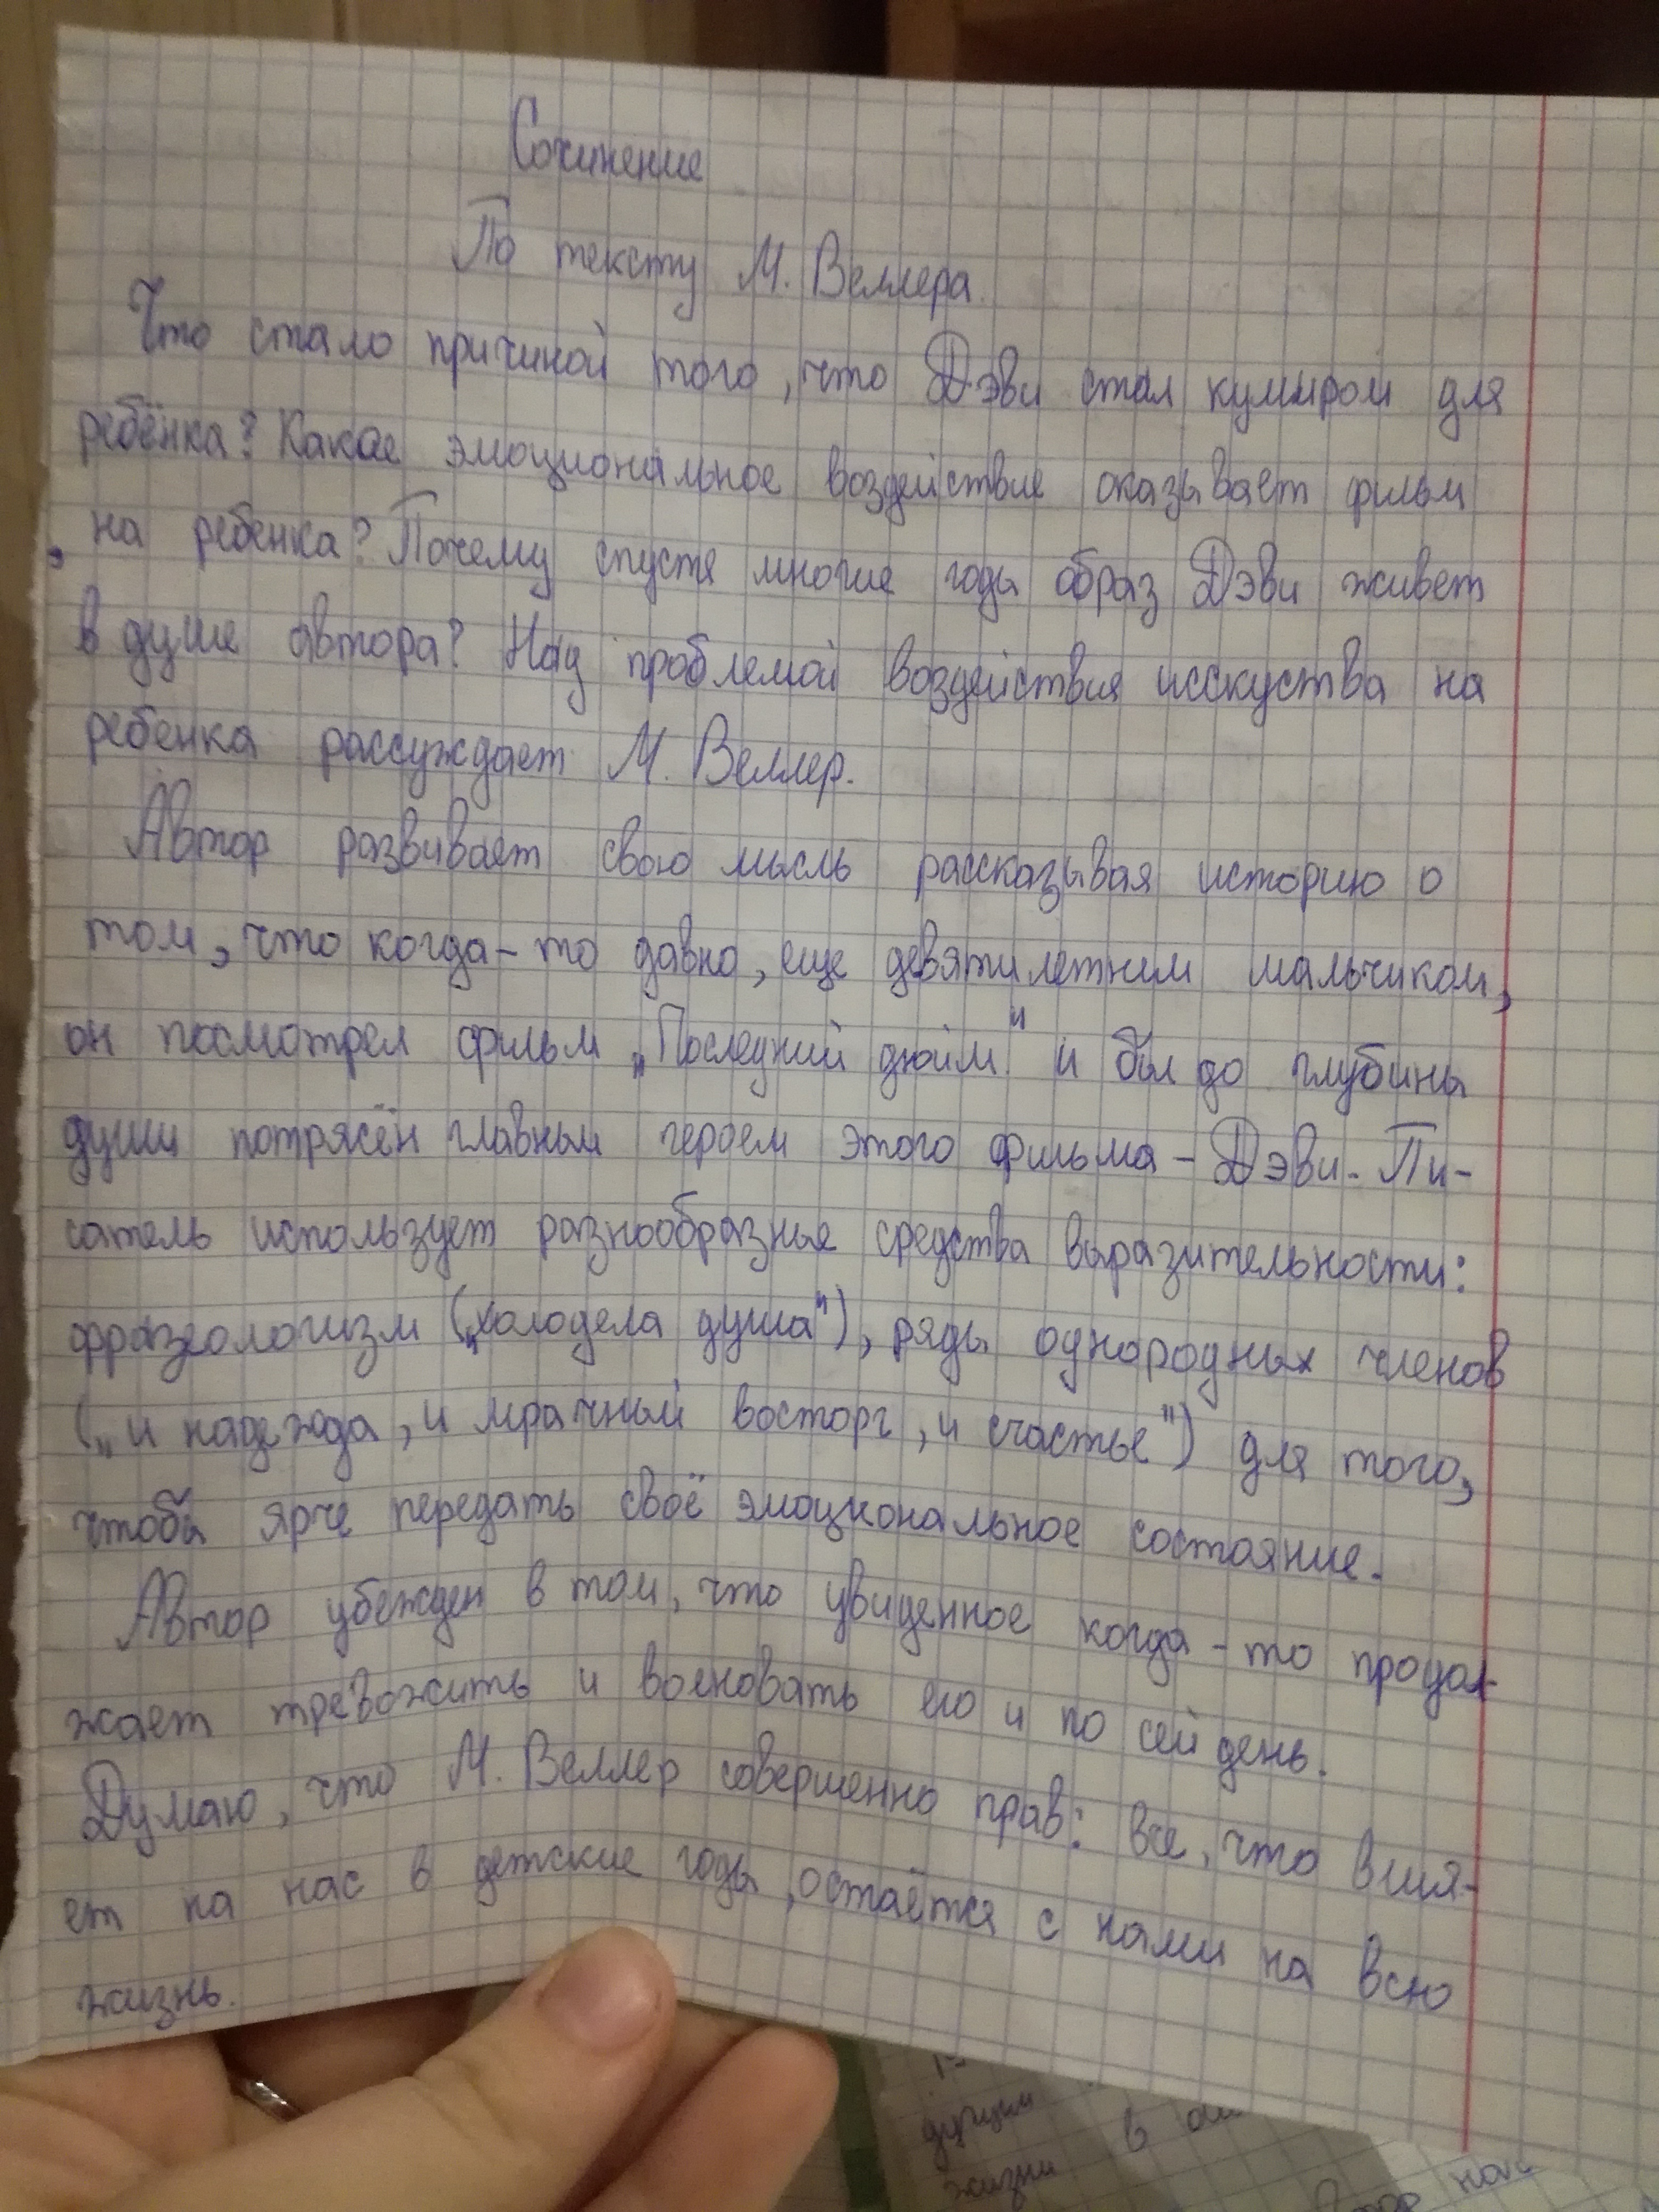 Сочинение
По тексту М. Веллера
Что стало причиной того, что Дэви стал кумиром для
ребёнка? Какое эмоциональное воздействие оказывает фильм
на ребенка? Почему спустя многие годы образ Дэви живет
в душе автора? Над проблемой воздействия исскуства на
ребенка рассуждает М. Веллер.
Автор развивает свою мысль рассказывая историю о
том, что когда-то давно, еще девятилетним мальчиком,
он посмотрел фильм „Последний дюйм" и был до глубины
души потрясён главным героем этого фильма - Дэви. Пи-
сатель использует разнообразные средства выразительности:
фразеологизм („холодела душа"), ряды однородных членов
(„и надежда, и мрачный восторг, и счастье") для того,
чтобы ярче передать своё эмоциональное состояние.
Автор убежден в том, что увиденное когда-то продол-
жает тревожить и волновать его и по сей день.
Думаю, что М. Веллер совершенно прав: все, что влия-
ет на нас в детские годы, остаётся с нами на всю
жизнь.
жизни в